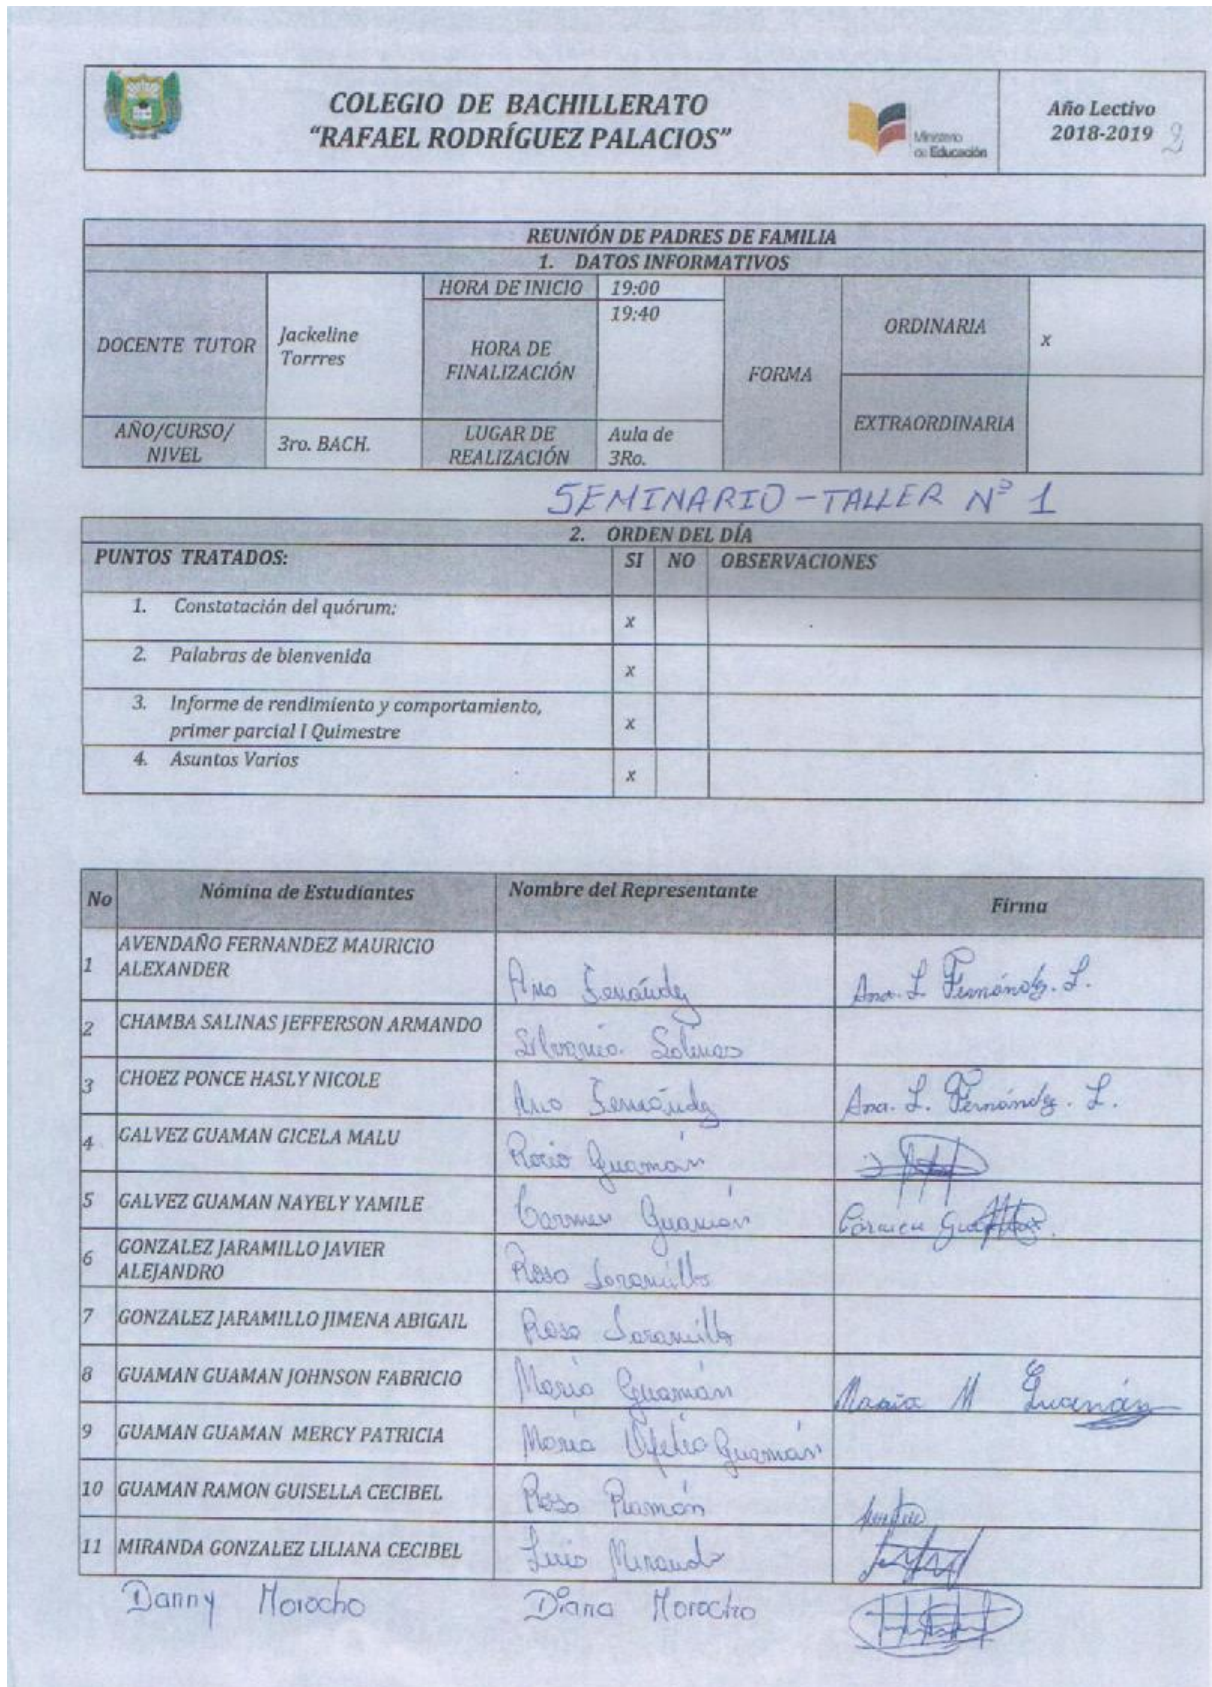 COLEGIO DE BACHILLERATO
"RAFAEL RODRÍGUEZ PALACIOS"
Ministerio
de Educación
Año Lectivo
2018-2019 2
REUNIÓN DE PADRES DE FAMILIA
1. DATOS INFORMATIVOS
DOCENTE TUTOR
Jackeline
Torrres
HORA DE INICIO 19:00
HORA DE
FINALIZACIÓN
19:40
FORMA
ORDINARIA x
EXTRAORDINARIA
AÑO/CURSO/
NIVEL
3ro. BACH.
LUGAR DE
REALIZACIÓN
Aula de
3Ro.
SEMINARIO - TALLER Nº 1
2. ORDEN DEL DÍA
PUNTOS TRATADOS: SI NO OBSERVACIONES
1. Constatación del quórum; x
2. Palabras de bienvenida x
3. Informe de rendimiento y comportamiento,
primer parcial I Quimestre x
4. Asuntos Varios x
No Nómina de Estudiantes Nombre del Representante Firma
1 AVENDAÑO FERNANDEZ MAURICIO
ALEXANDER
Ana Fernández Ana. L Fernández. L.
2 CHAMBA SALINAS JEFFERSON ARMANDO Silvania Salinas
3 CHOEZ PONCE HASLY NICOLE Ana Fernández Ana. L. Fernández. L.
4 GALVEZ GUAMAN GICELA MALU Rocio Guamán
5 GALVEZ GUAMAN NAYELY YAMILE Carmen Guamán Carmen
6 GONZALEZ JARAMILLO JAVIER
ALEJANDRO
Rosa Jaramillo
7 GONZALEZ JARAMILLO JIMENA ABIGAIL Rosa Jaramillo
8 GUAMAN GUAMAN JOHNSON FABRICIO María Guamán Maria M Guamán
9 GUAMAN GUAMAN MERCY PATRICIA María Ofelia Guamán
10 GUAMAN RAMON GUISELLA CECIBEL Rosa Ramón
11 MIRANDA GONZALEZ LILIANA CECIBEL Luis Miranda
Danny Morocho Diana Morocho